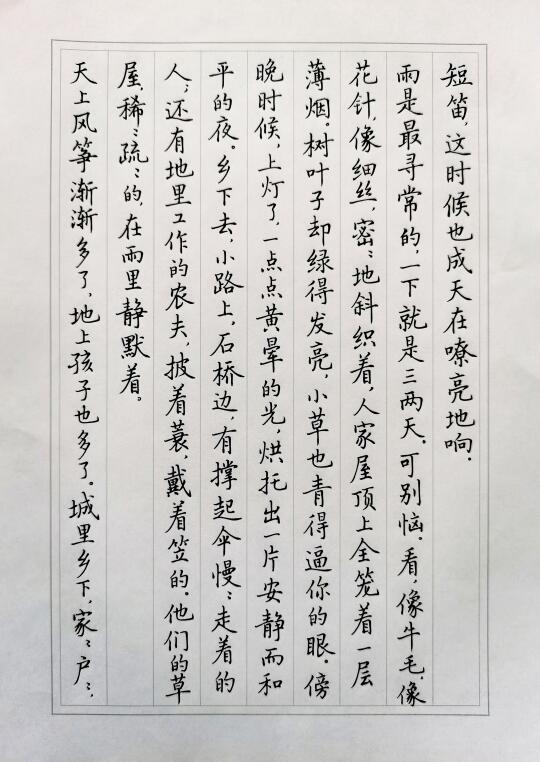 短笛，这时候也成天在嘹亮地响。
雨是最寻常的，一下就是三两天。可别恼。看，像牛毛，像
花针，像细丝，密：地斜织着，人家屋顶上全笼着一层
薄烟。树叶子却绿得发亮，小草也青得逼你的眼。傍
晚时候，上灯了，一点点黄晕的光，烘托出一片安静而和
平的夜。乡下去，小路上，石桥边，有撑起伞慢：走着的
人；还有地里工作的农夫，披着蓑，戴着笠的。他们的草
屋，稀：疏：的，在雨里静默着。
天上风筝渐渐多了，地上孩子也多了。城里乡下，家：户：，